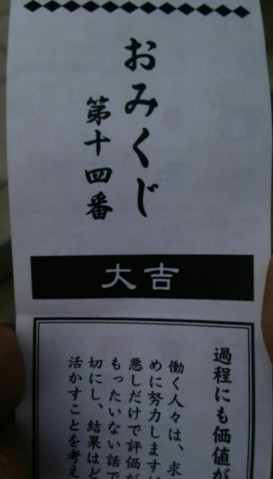 おみくじ
第十四番
大吉
過程にも価値が
働く人々は、求
めに努力しますが
悪しだけで評価が
もったいない話で
切にし、結果はど
活かすことを考え